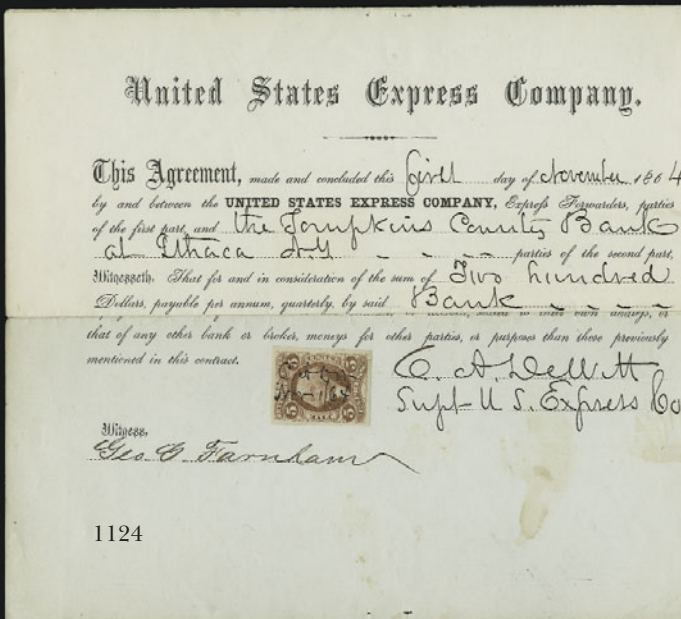 United States Express Company.
This Agreement, made and concluded this first day of November 1864
by and between the UNITED STATES EXPRESS COMPANY, Express Forwarders, parties
of the first part, and the Tompkins County Bank
at Ithaca N.Y. - - - - parties of the second part,
Witnesseth. That for and in consideration of the sum of Two hundred
Dollars, payable per annum, quarterly, by said Bank - - - -
that of any other bank or broker, moneys for other parties, or purposes than those previously
mentioned in this contract.
C. A. DeWitt
Supt U S. Express Co
5 5
Nov 1/64
5 5
Witness,
Geo. C. Farnham
1124